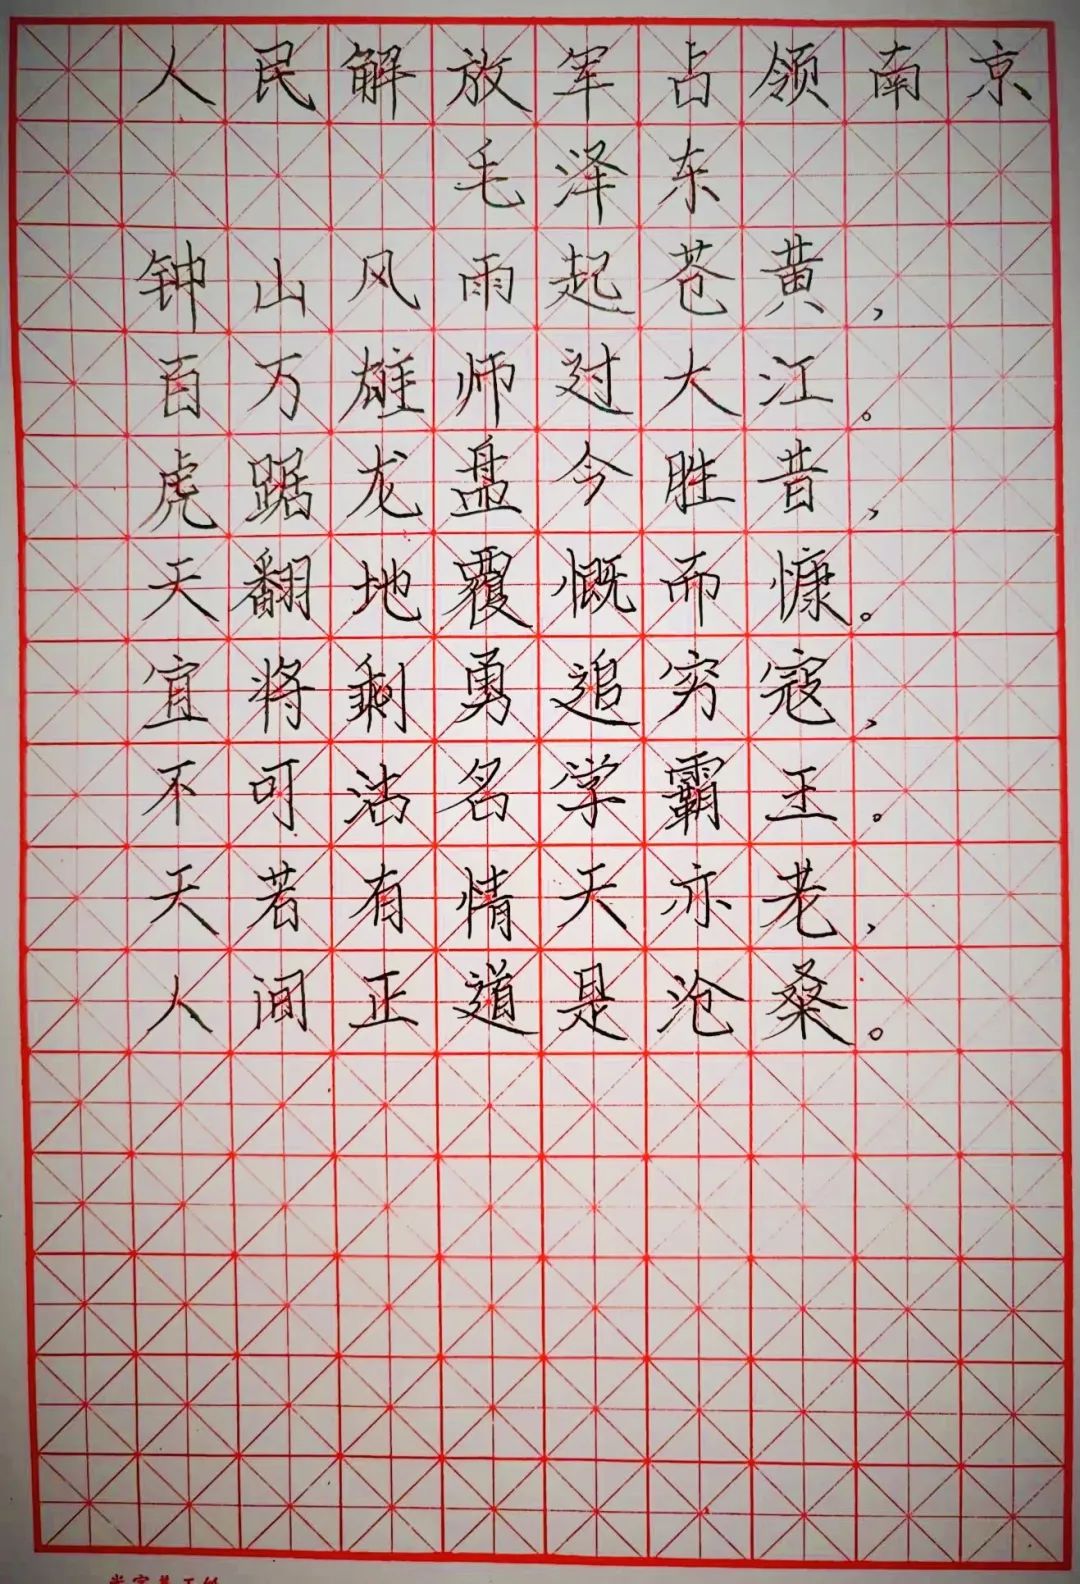 人民解放军占领南京
毛泽东
钟山风雨起苍黄,
百万雄师过大江。
虎踞龙盘今胜昔,
天翻地覆慨而慷。
宜将剩勇追穷寇,
不可沽名学霸王。
天若有情天亦老,
人间正道是沧桑。